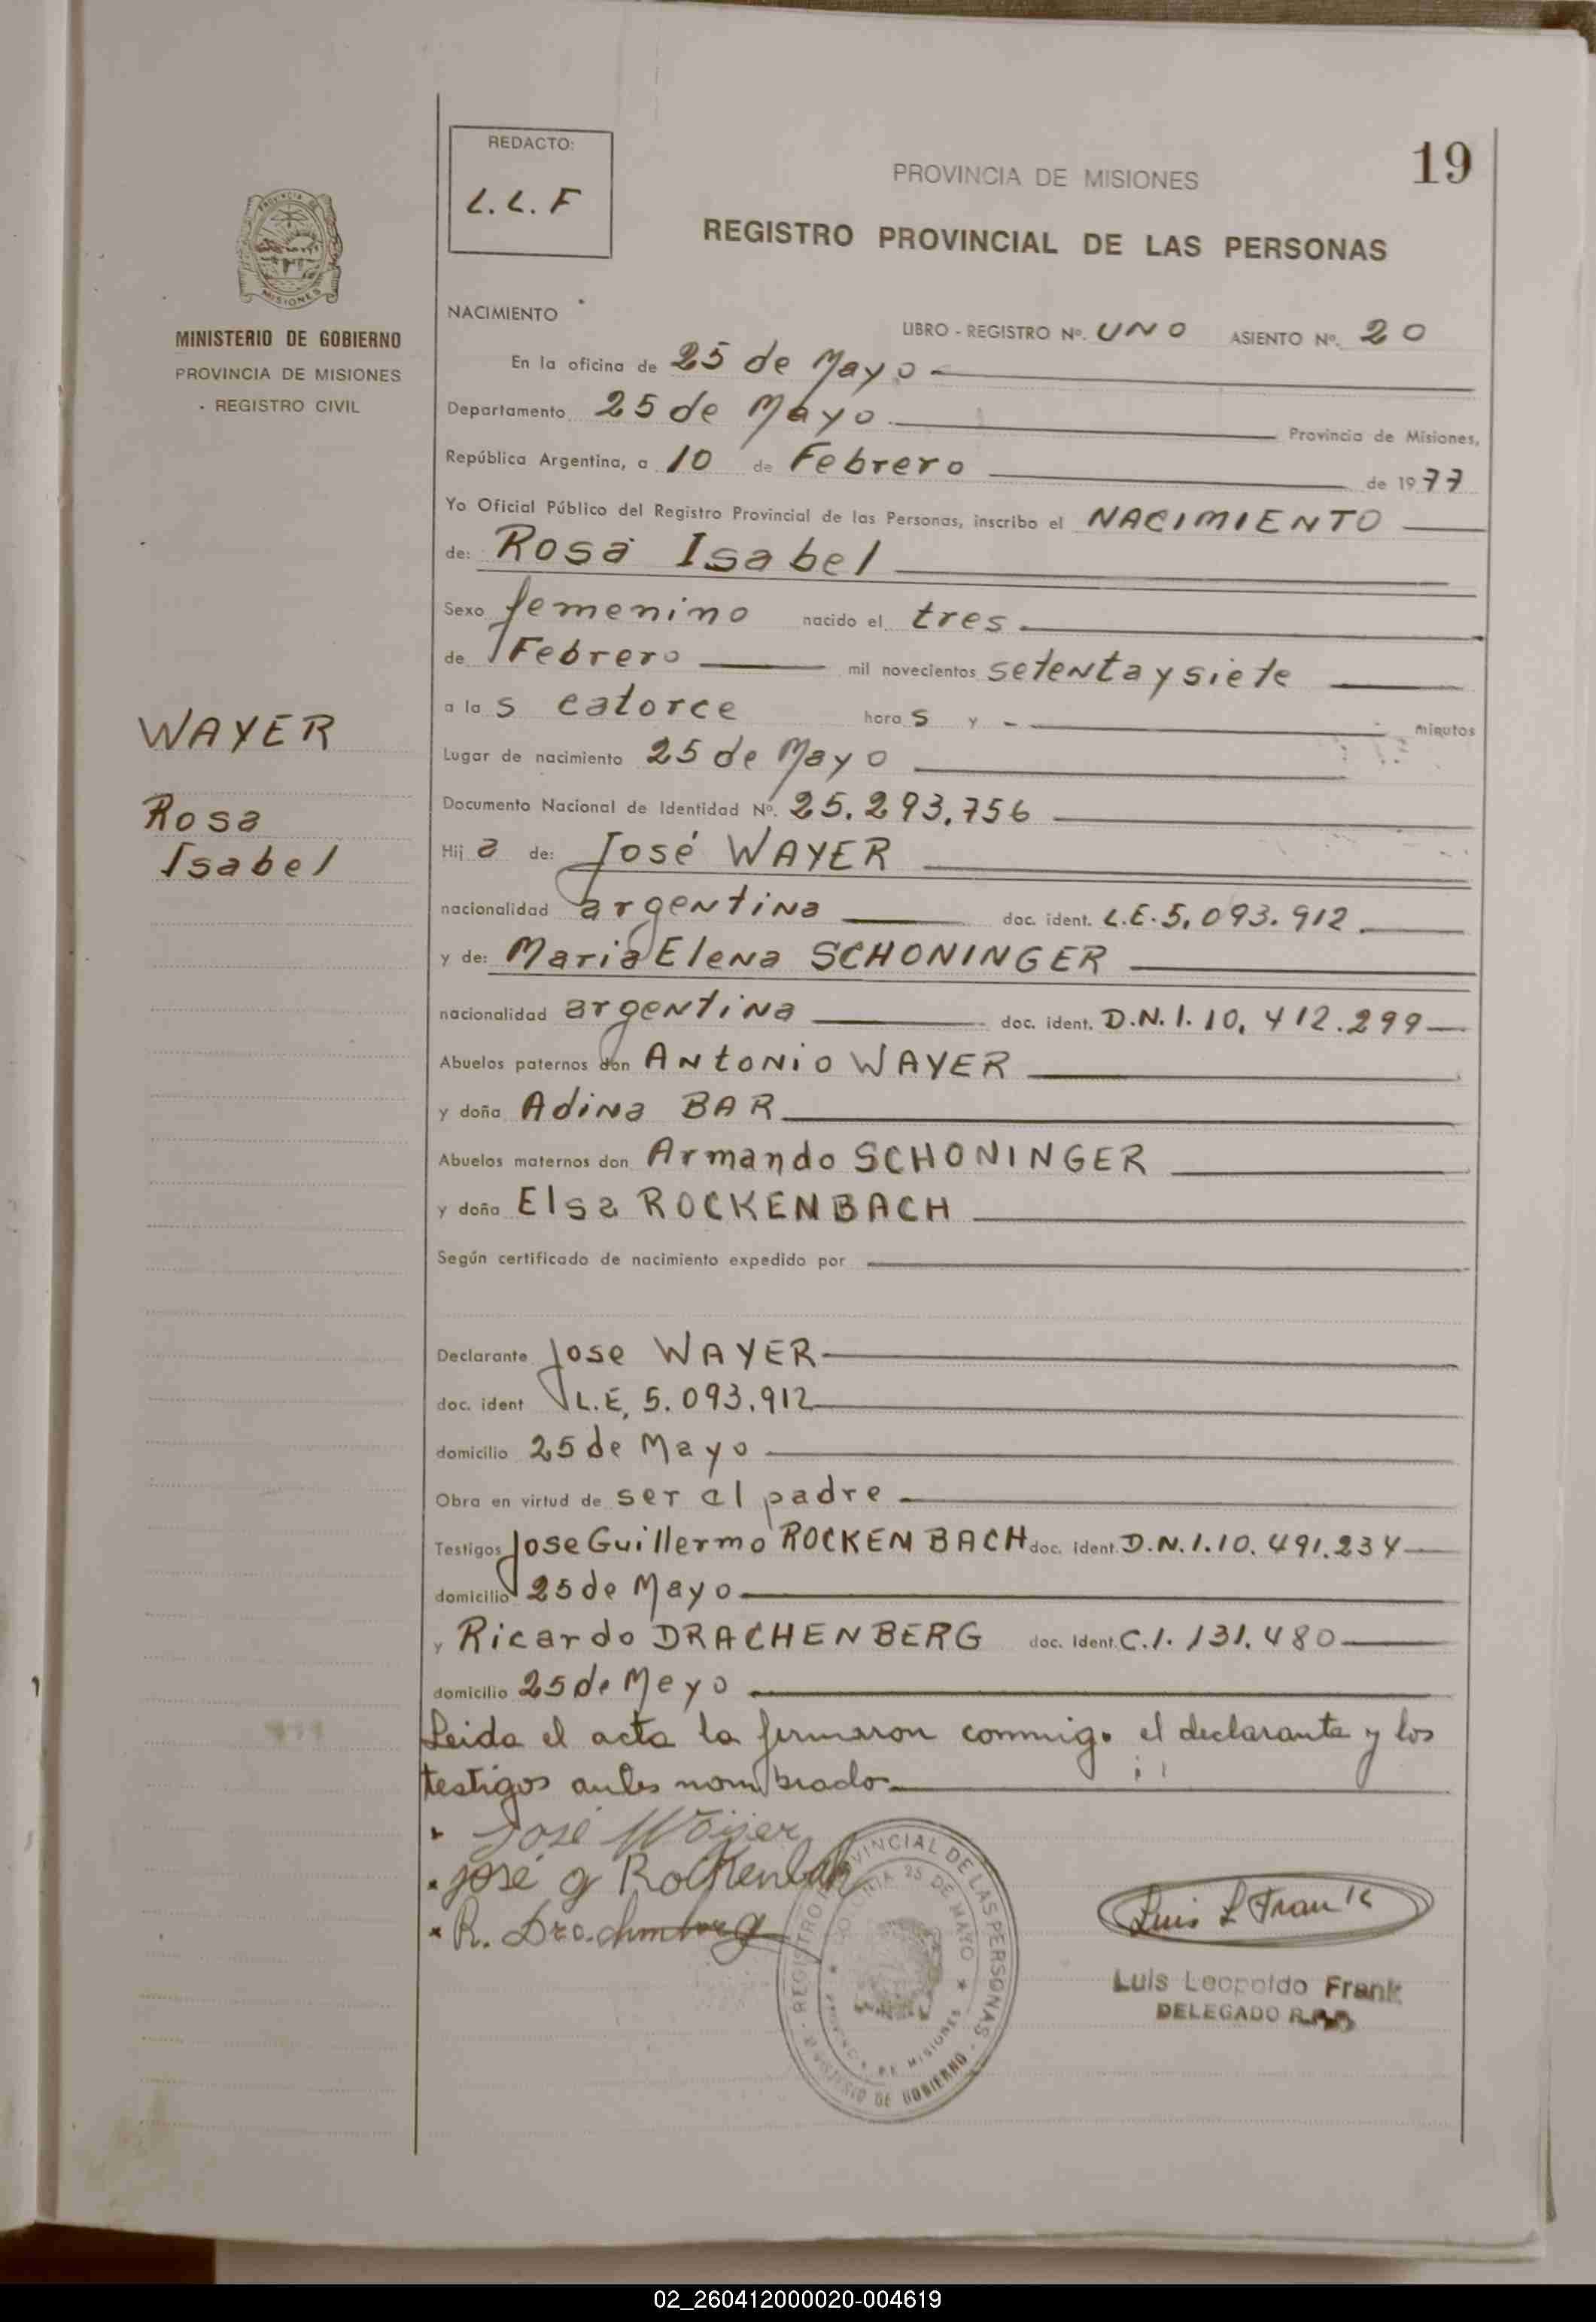 REDACTO:
L.L.F
19
PROVINCIA DE MISIONES
REGISTRO PROVINCIAL DE LAS PERSONAS
PROVINCIA DE
MISIONES
MINISTERIO DE GOBIERNO
PROVINCIA DE MISIONES
REGISTRO CIVIL
NACIMIENTO
LIBRO - REGISTRO Nº. UNO ASIENTO Nº. 20
En la oficina de 25 de Mayo
Departamento 25 de Mayo Provincia de Misiones,
República Argentina, a 10 de Febrero de 1977
Yo Oficial Público del Registro Provincial de las Personas, inscribo el NACIMIENTO
de: Rosa Isabel
Sexo femenino nacido el tres
de Febrero mil novecientos setenta y siete
a las catorce horas y - minutos
Lugar de nacimiento 25 de Mayo
WAYER
Rosa
Isabel
Documento Nacional de Identidad Nº. 25.293.756
Hija de: José WAYER
nacionalidad argentina doc. ident. L.E. 5.093.912
y de: Maria Elena SCHONINGER
nacionalidad argentina doc. ident. D.N.I. 10.412.299
Abuelos paternos don Antonio WAYER
y doña Adina BAR
Abuelos maternos don Armando SCHONINGER
y doña Elsa ROCKENBACH
Según certificado de nacimiento expedido por
Declarante Jose WAYER
doc. ident L.E. 5.093.912
domicilio 25 de Mayo
Obra en virtud de ser el padre
Testigos Jose Guillermo ROCKENBACH doc. ident. D.N.I. 10.491.234
domicilio 25 de Mayo
y Ricardo DRACHENBERG doc. Ident. C.I. 131.480
domicilio 25 de Meyo
Leida el acta la firmaron conmigo el declarante y los
testigos antes nombrados
José Wayer
José g Rockenbach
R. Drachenberg
REGISTRO PROVINCIAL DE LAS PERSONAS
MINISTERIO DE GOBIERNO
COLONIA 25 DE MAYO
PROVINCIA DE MISIONES
Luis L Frank
Luis Leopoldo Frank
DELEGADO
02_260412000020-004619